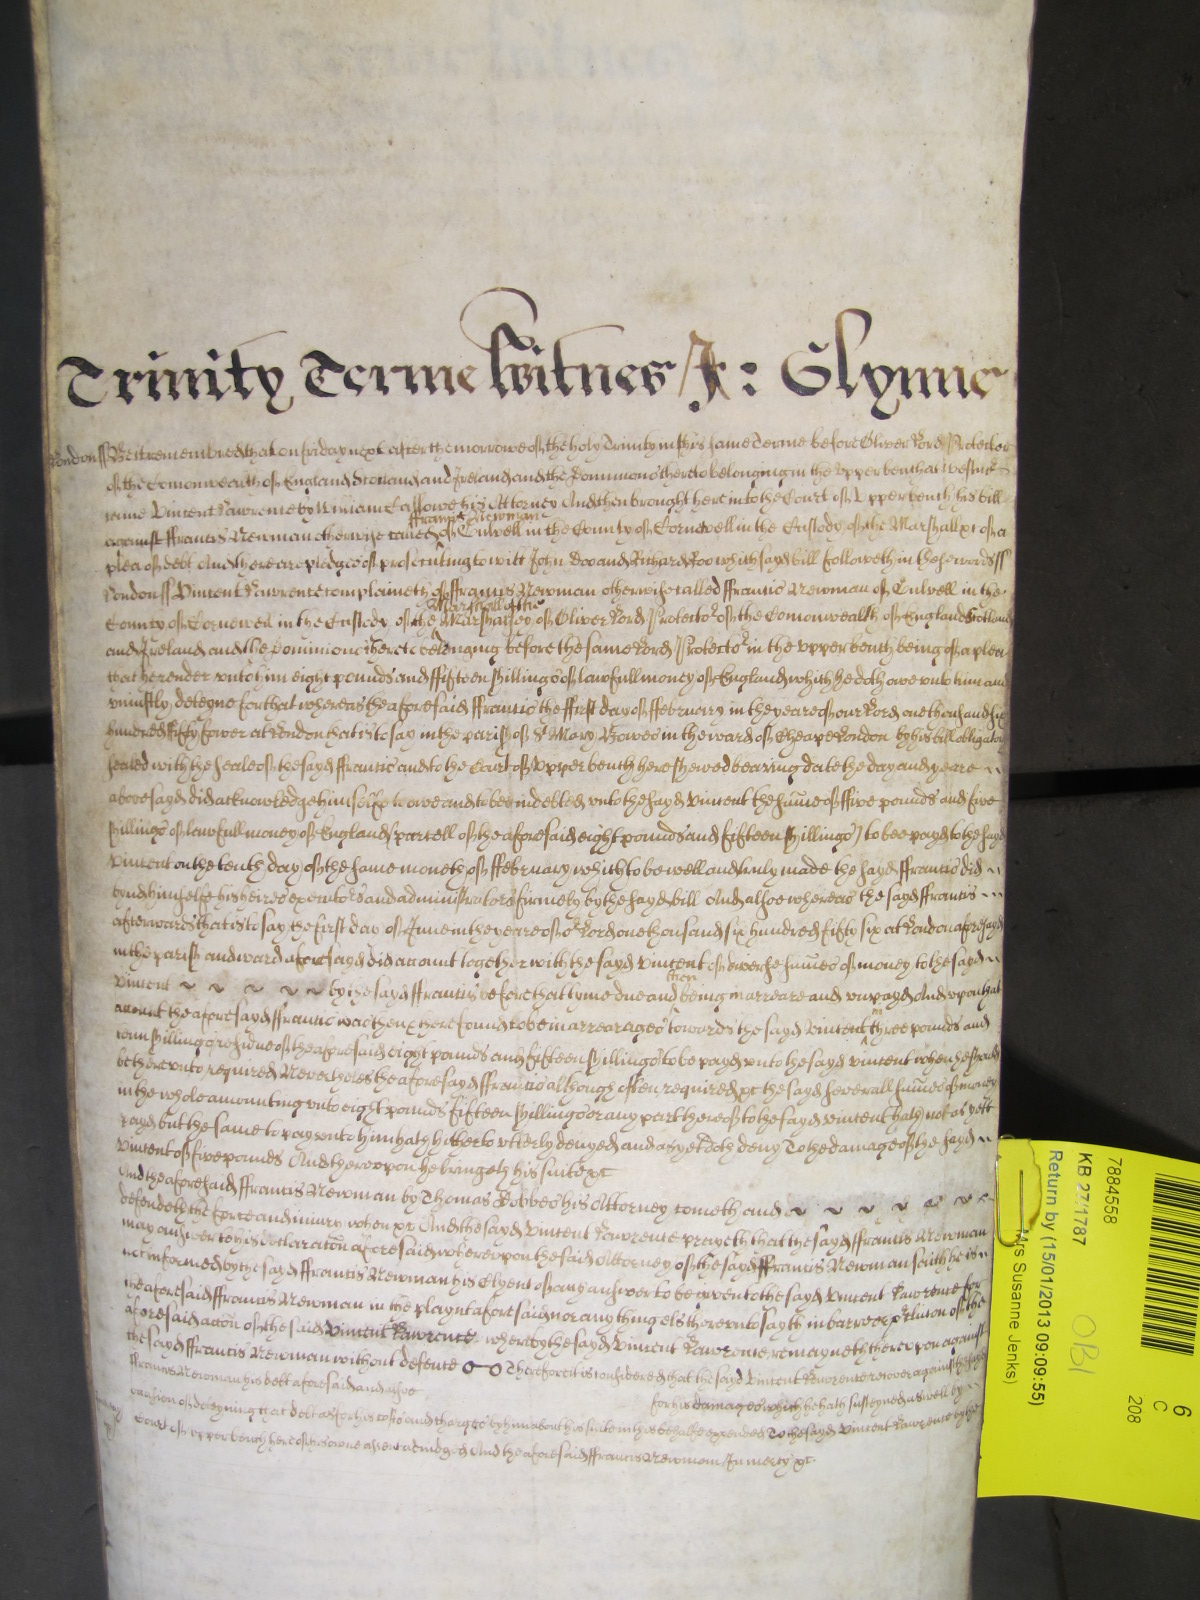 Trinity Terme Witnes J: Glynne
London ss Be it remembred that on friday next after the morrowe of the holy Trinity in this same Terme before Oliver Lord Protector
of the Comonwealth of England Scotland and Ireland and the Dominions thereto belonging in the upper bench at Westmr
came Vincent Lawrence by William Callowe his Attorney And then brought here into the Court of Upper bench his bill
against ffrancis Newman otherwise called ffrancis Newman of Culwell in the County of Cornewell in the Custody of the Marshall &c of a
plea of debt And there are pledges of prosecuting to witt John Doo and Richard Roo which sayd bill followeth in these words ss
London ss Vincent Lawrence complaineth of ffrancis Newman otherwise called ffrancis Newman of Culwell in the
County of Cornewell in the Custody of the Marshall of the Marshalsey of Oliver Lord Protector of the Comonwealth of England Scotland
and Ireland and the Dominions thereto belonging before the same Lord Protector in the upper bench being of a plea
that he render unto him eight pounds and fifteen shillings of lawfull money of England which he doth owe unto him and
uniustly deteyne for that whereas the aforesaid ffrancis the first day of ffebruary in the yeare of our Lord one thousand six
hundred fifty fower at London that is to say in the parish of St Mary Bowes in the ward of Cheape London by his bill obligatory
sealed with the seale of the sayd ffrancis and to the Court of upper bench here shewed bearing date the day and yeare
abovesayd did acknowledge himselfe to owe and to bee indebted unto the sayd Vincent the sume of ffive pounds and five
shillings of lawfull money of England (parcell of the aforesaid eight pounds and fifteen shillings) to bee payd to the sayd
Vincent on the tenth day of the same moneth of ffebruary which to be well and truly made the sayd ffrancis did
bynd himselfe his heires executors and administrators firmely by the sayd bill And alsoe whereas the sayd ffrancis
afterwards that is to say the first day of June in the yeare of or Lord one thousand six hundred fifty six at London aforesayd
in the parish and ward aforesayd did account together with the sayd Vincent of diverse sumes of money to the sayd
Vincent by the sayd ffrancis before that tyme due and then being in arreare and unpayd And upon that
account the aforesayd ffrancis was then & there found to be in arrearages towards the sayd Vincent in three pounds and
tenn shillings residue of the aforesaid eight pounds and fifteen shillings to be payd unto the sayd Vincent when he should
be thereunto required Neverthelesse the aforesayd ffrancis although often required &c the sayd severall sumes of money
in the whole amounting unto eight pounds fifteen shillings or any part thereof to the sayd Vincent hath not as yett
payd but the same to pay unto him hath hitherto utterly denyed and as yet doth deny To the damage of the sayd
Vincent of five pounds And thereupon he bringeth his suite &c
And the aforesaid ffrancis Newman by Thomas Hobbes his Attorney cometh and
defendeth the force and iniury when &c And the sayd Vincent Lawrence prayeth that the sayd ffrancis Newman
may answer to his declaracon aforesaid whereupon the said Attorney of the sayd ffrancis Newman saith he is
not informed by the sayd ffrancis Newman his Clyent of any answer to be given to the sayd Vincent Lawrence for
the aforesaid ffrancis Newman in the playnt aforesaid nor any thing els thereunto sayth in barr or preclusion of the
aforesaid accon of the said Vincent Lawrence whereby the sayd Vincent Lawrence remayneth thereupon against
the sayd ffrancis Newman without defence Therefore it is considered that the sayd Vincent Lawrence recover against the sayd
ffrancis Newman his debt aforesaid and alsoe for his damages which he hath susteyned as well by
occasion of deteyning that debt as for his costs and charges by him about his suite in this behalfe expended To the sayd Vincent Lawrence by the
Court of upper bench here of his owne assent adiudged And the aforesaid ffrancis Newman In mercy &c
7884558
KB 27/1787
Return by (15/01/2013 09:09:55)
Mrs Susanne Jenks)
OBI
6
C
208